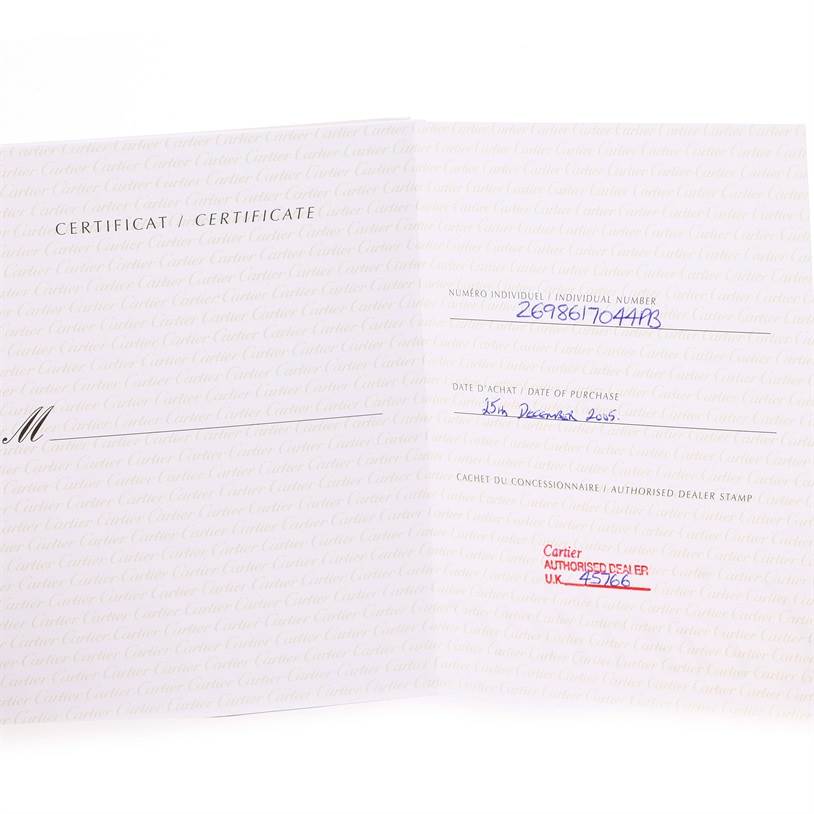 CERTIFICAT / CERTIFICATE
M
NUMÉRO INDIVIDUEL / INDIVIDUAL NUMBER
2698617044PB
DATE D'ACHAT / DATE OF PURCHASE
25th DECEMBER 2005.
CACHET DU CONCESSIONNAIRE / AUTHORISED DEALER STAMP
Cartier
AUTHORISED DEALER
U.K. 45766